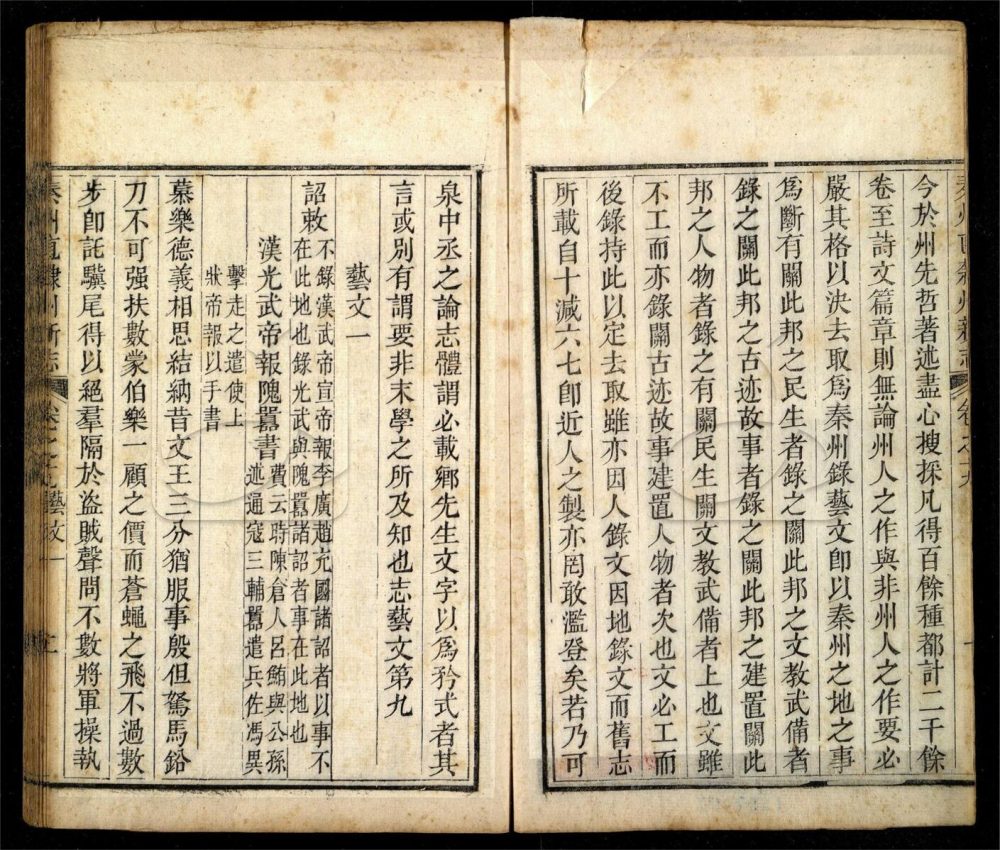 秦州直隸州新志
卷之十九
今於州先哲著述盡心搜採凡得百餘種都計二千餘
卷至詩文篇章則無論州人之作與非州人之作要必
嚴其格以決去取爲秦州錄藝文卽以秦州之地之事
爲斷有關此邦之民生者錄之關此邦之文教武備者
錄之關此邦之古迹故事者錄之關此邦之建置關此
邦之人物者錄之有關民生關文教武備者上也文雖
不工而亦錄關古迹故事建置人物者次也文必工而
後錄持此以定去取雖亦因人錄文因地錄文而舊志
所載自十減六七卽近人之製亦罔敢濫登矣若乃可
泉中丞之論志體謂必載鄉先生文字以爲矜式者其
言或別有謂要非末學之所及知也志藝文第九
藝文一
詔敕
不錄漢武帝宣帝報李廣趙充國諸詔者以事不
在此地也錄光武與隗囂諸詔者事在此地也
漢光武帝報隗囂書
費云時陳倉人呂鮪與公孫
述通寇三輔囂遣兵佐馮異
擊走之遣使上
狀帝報以手書
慕樂德義相思結納昔文王三分猶服事殷但駑馬鉛
刀不可强扶數蒙伯樂一顧之價而蒼蠅之飛不過數
步卽託驥尾得以絕羣隔於盜賊聲問不數將軍操執
秦州直隸州新志
藝文一